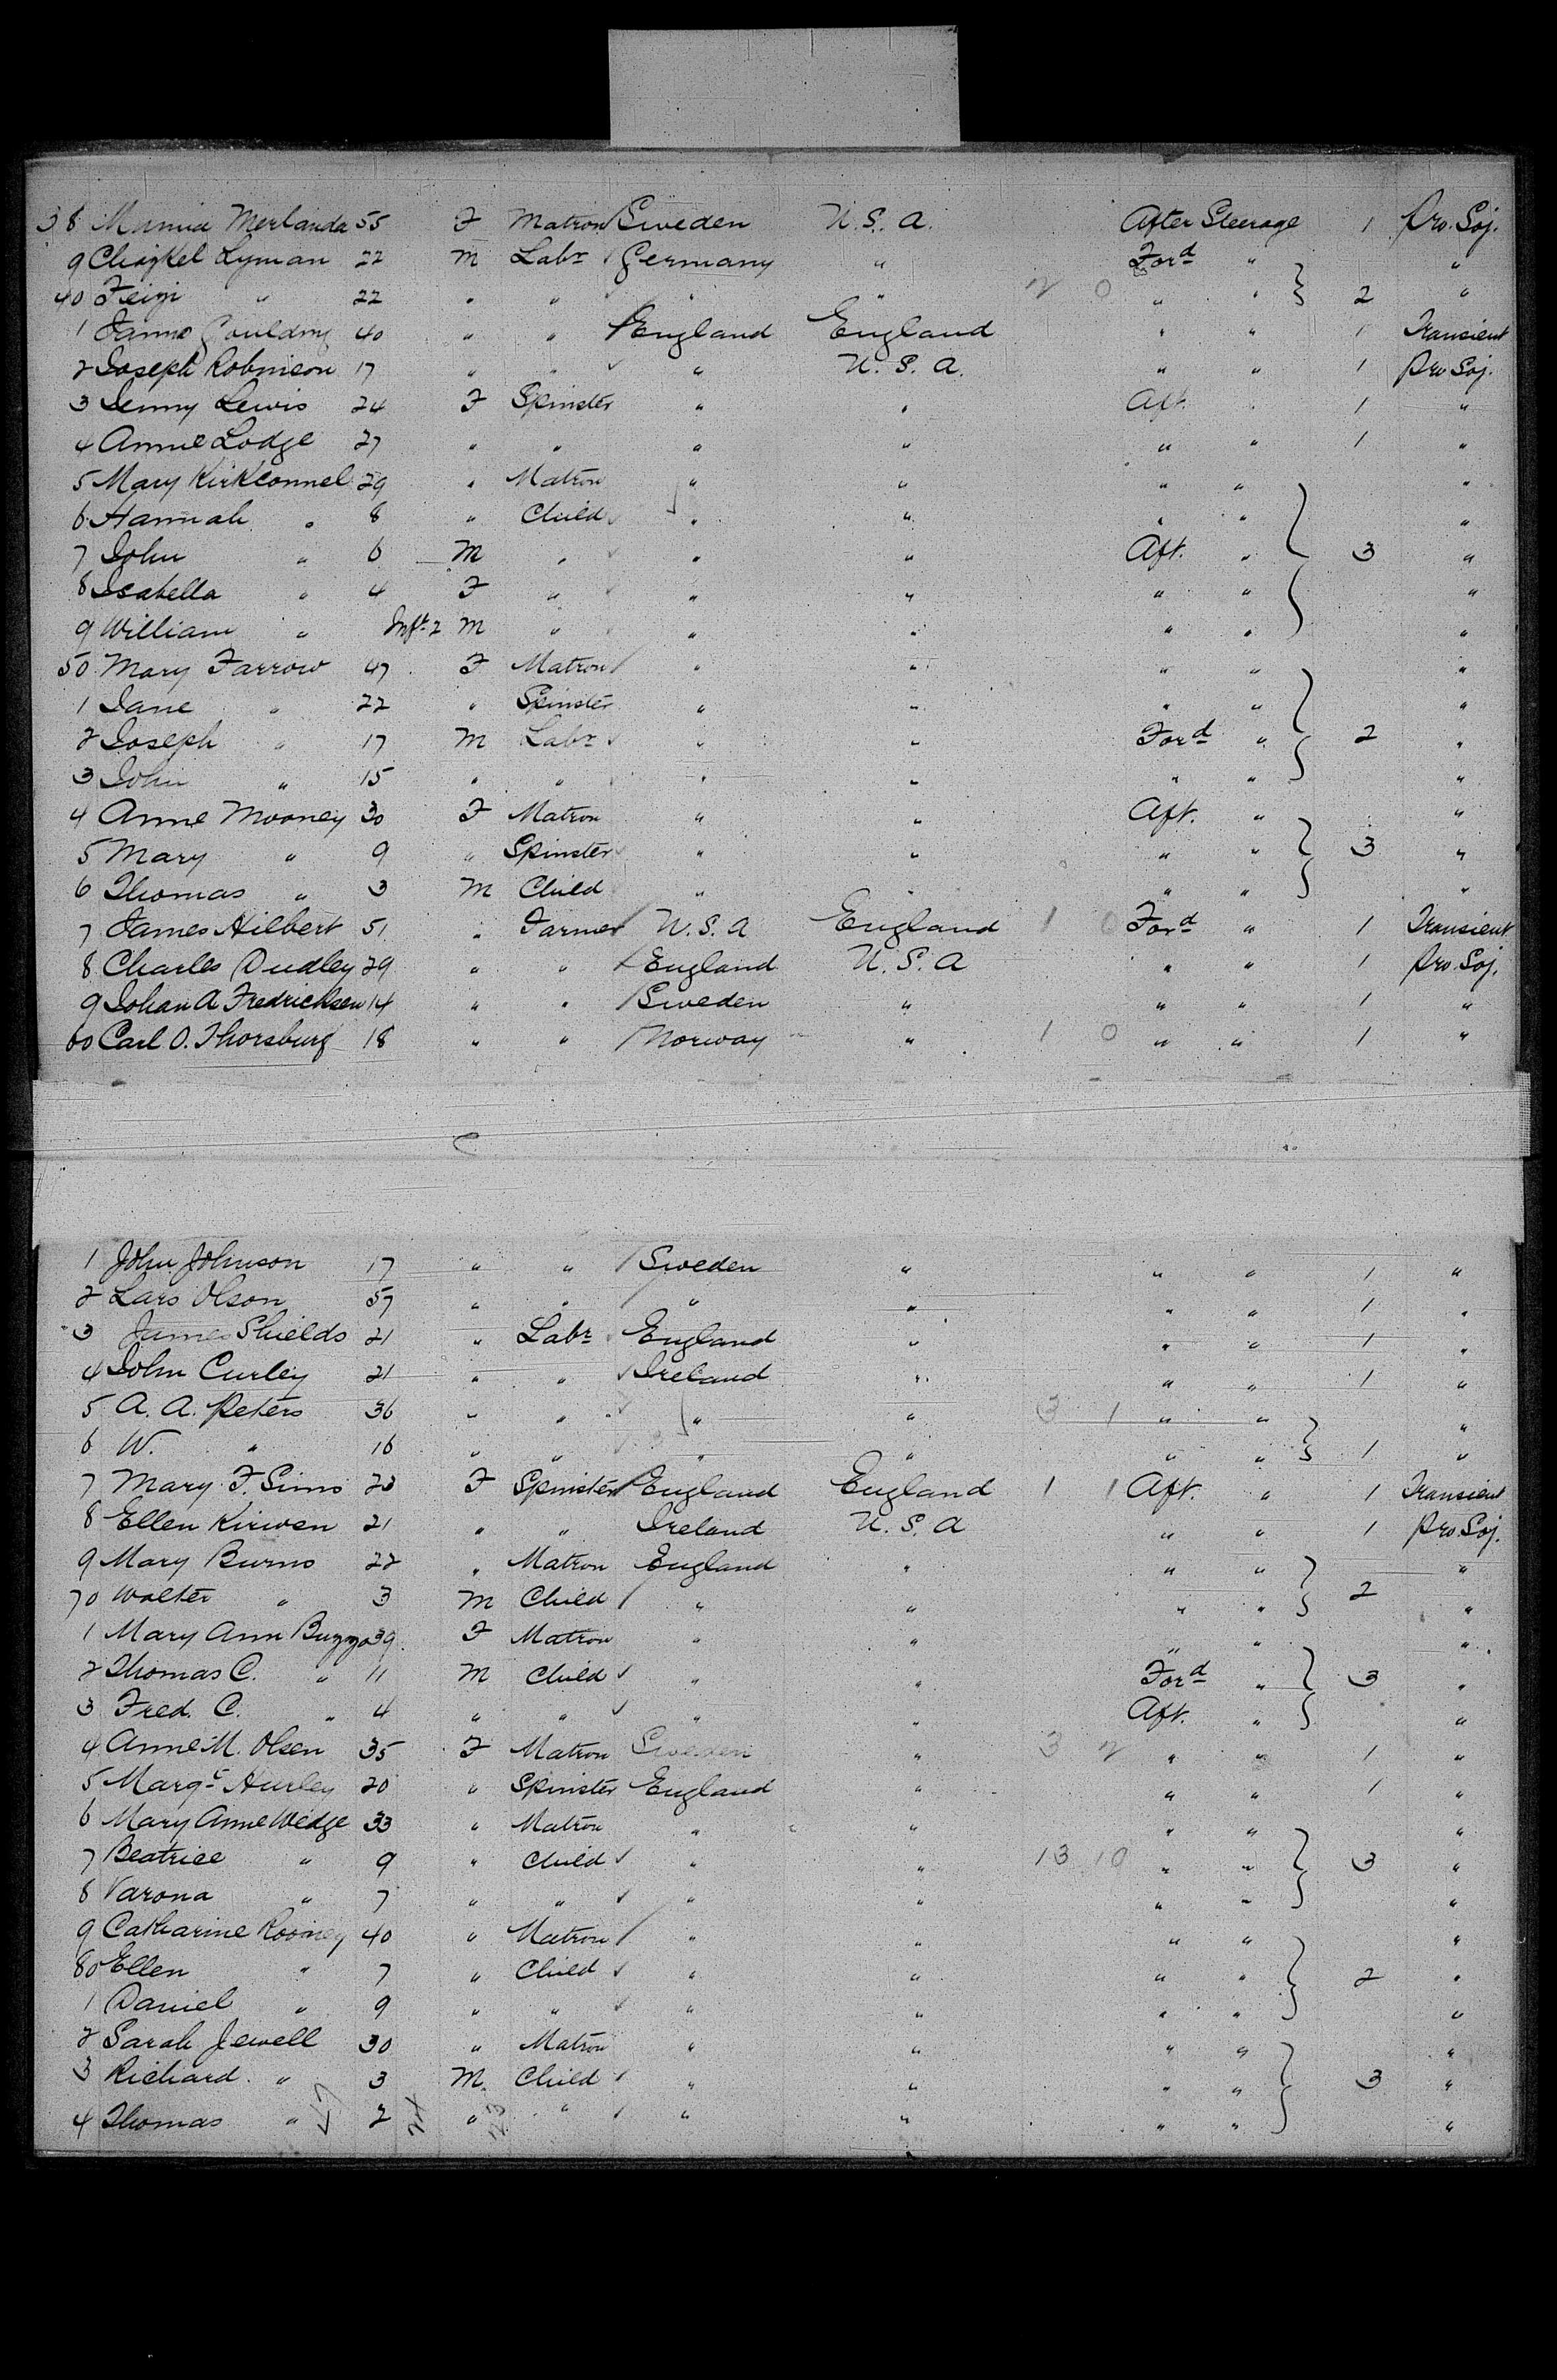 38 Manna Merlanda 55 F Matron Sweden U.S.A. After Steerage 1 Pro. Soj.
9 Chaskel Lyman 22 M Labr Germany " Ford " "
40 Feigi " 22 " " " " 2 0 " " 2 "
1 Goulding 40 " " England England " " 1 Transient
2 Joseph Robinson 17 " " " U.S.A. " " 1 Pro Soj.
3 Jenny Lewis 24 F Spinster " " Aft. " 1 "
4 Annie Lodge 27 " " " " " " 1 "
5 Mary Kirkconnel 29 " Matron " " " " "
6 Hannah " 8 " Child " " " " "
7 John " 6 M " " " Aft. " 3 "
8 Isabella " 4 F " " " " " "
9 William " Inft. 2 M " " " " " "
50 Mary Farrow 47 F Matron " " " " "
1 Jane " 22 " Spinster " " " " "
2 Joseph " 17 M Labr " " Ford " 2 "
3 John " 15 " " " " " " "
4 Anne Mooney 30 F Matron " " Aft. " "
5 Mary " 9 " Spinster " " " " 3 "
6 Thomas " 3 M Child " " " " "
7 James Hilbert 51 " Farmer U.S.A England 1 0 Ford " 1 Transient
8 Charles Dudley 29 " " England U.S.A " " 1 Pro. Soj.
9 Johan A Fredricksen 14 " " Sweden " " " 1 "
60 Carl O. Thorsburg 18 " " Norway " 1 0 " " 1 "
1 John Johnson 17 " " Sweden " " " 1 "
2 Lars Olson 57 " " " " " " 1 "
3 James Shields 21 " Labr England " " " 1 "
4 John Curley 21 " " Ireland " " " 1 "
5 A. A. Peters 36 " " " " 3 1 " " "
6 W. " 16 " " " " " " 1 "
7 Mary F. Sims 23 F Spinster England England 1 1 Aft. " 1 Transient
8 Ellen Kirwen 21 " " Ireland U.S.A " " 1 Pro Soj.
9 Mary Burns 22 " Matron England " " " "
70 Walter " 3 M Child " " " " 2 "
1 Mary Ann Buzzo 39 F Matron " " " " "
2 Thomas C. " 11 M Child " " Ford " 3 "
3 Fred. C. " 4 " " " " Aft. " "
4 Anne M. Olsen 35 F Matron Sweden " 3 2 " " 1 "
5 Margt Hurley 20 " Spinster England " " " 1 "
6 Mary Anne Wedge 33 " Matron " " " " "
7 Beatrice " 9 " Child " " 13 10 " " 3 "
8 Varona " 7 " " " " " " "
9 Catharine Rooney 40 " Matron " " " " "
80 Ellen " 7 " Child " " " " 2 "
1 Daniel " 9 " " " " " " "
2 Sarah Jewell 30 " Matron " " " " "
3 Richard " 3 M. Child " " " " 3 "
4 Thomas " 2 " " " " " " "